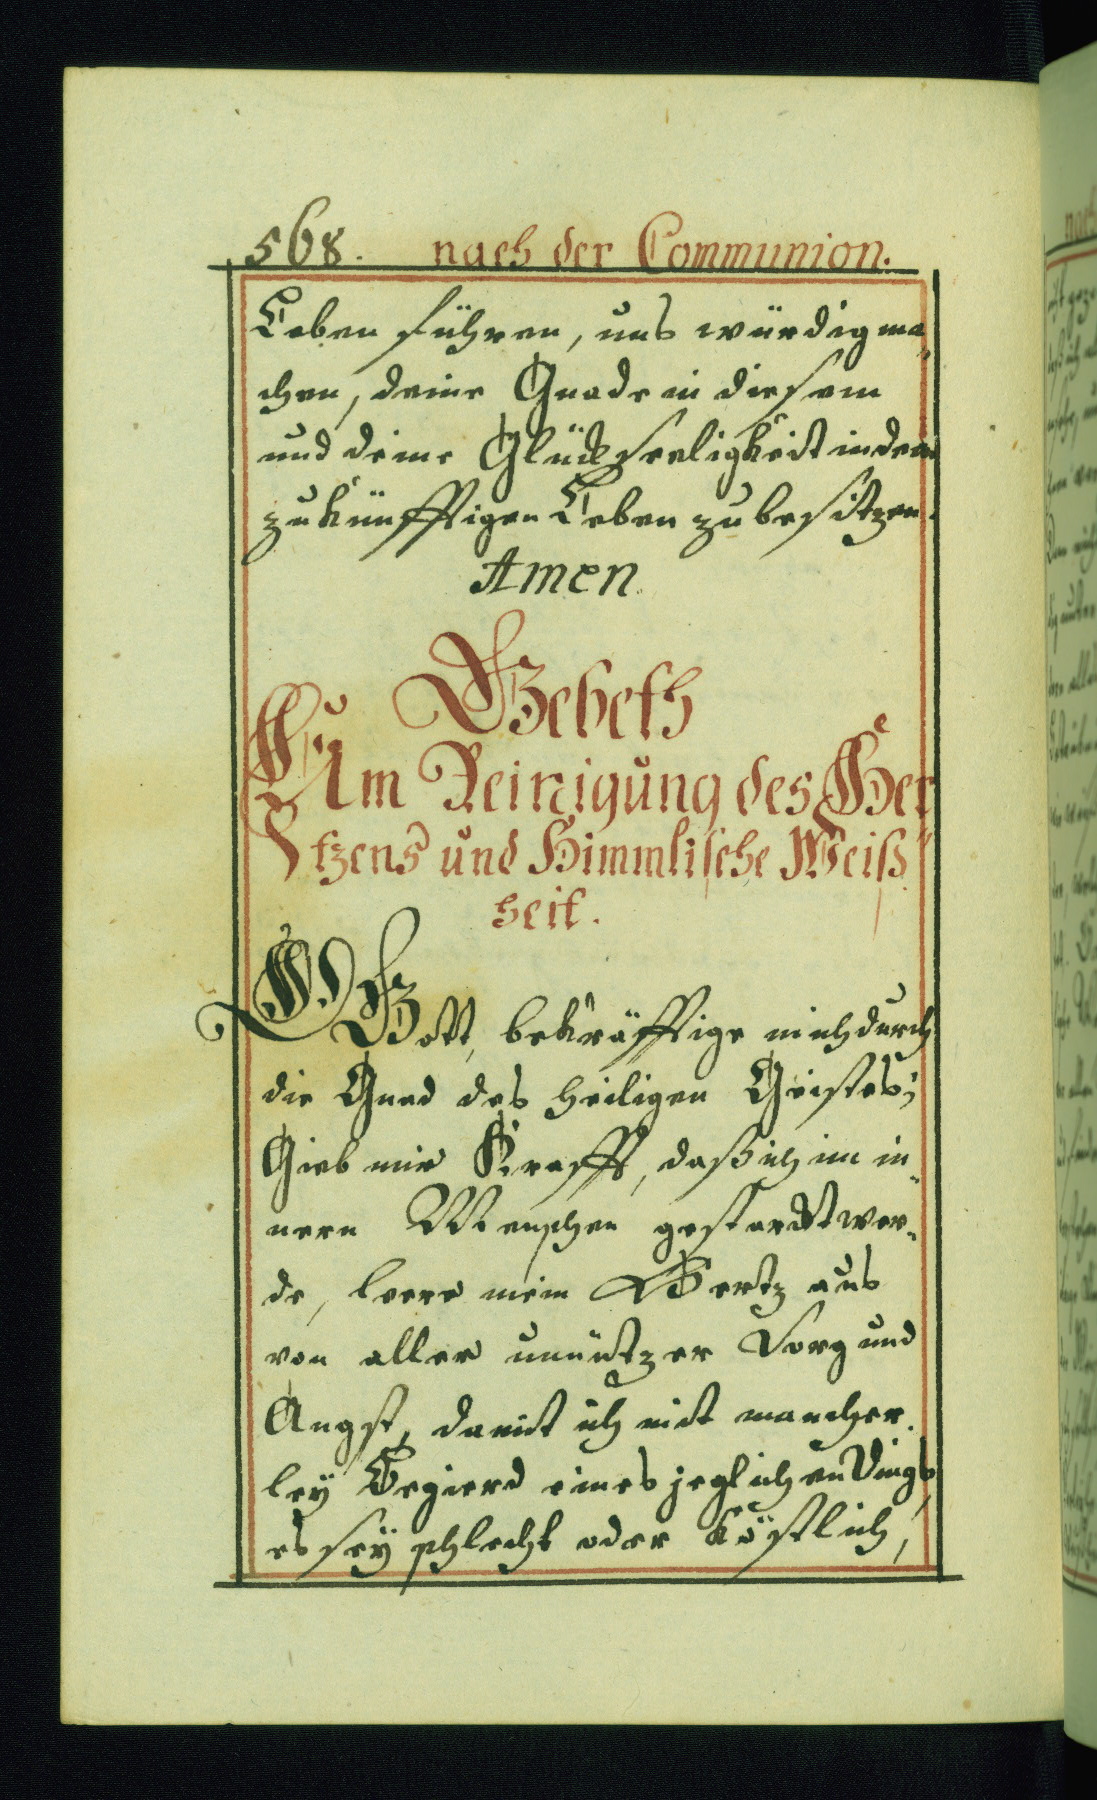 568. nach der Communion.
Leben führen, uns würdig ma„
chen, deine Gnade in diesem
und deine Glückseeligkeit in dem
zukünfftigen Leben zu besitzen.
Amen.
Gebeth
Um Reinigung des Her„
tzens und Himmlische Weiß„
heit.
O Gott, bekräfftige mich durch
die Gnad des heiligen Geistes;
Gieb mir Krafft, daß ich im in„
nern Menschen gestarckt wer„
de, leere mein Hertz aus
von aller unnützer Sorg und
Angst, damit ich nicht mancher„
leÿ Begierd eines jeglichen Dings,
es seÿ schlecht oder köstlich,